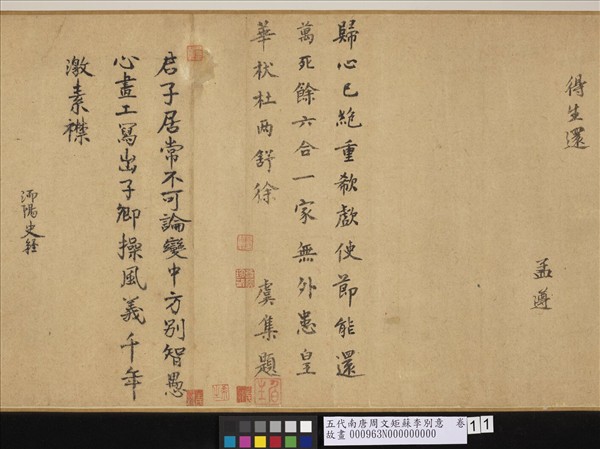 得生還
孟遵
歸心已絶重欷歔使節能還
萬死餘六合一家無外患皇
華杕杜两舒徐
虞集題
君子居常不可論變中方別智愚
心畫工寫出子卿操風義千年
激素襟
陽史
五代南唐周文矩蘇李別意 卷 11
故畫 000963N000000000